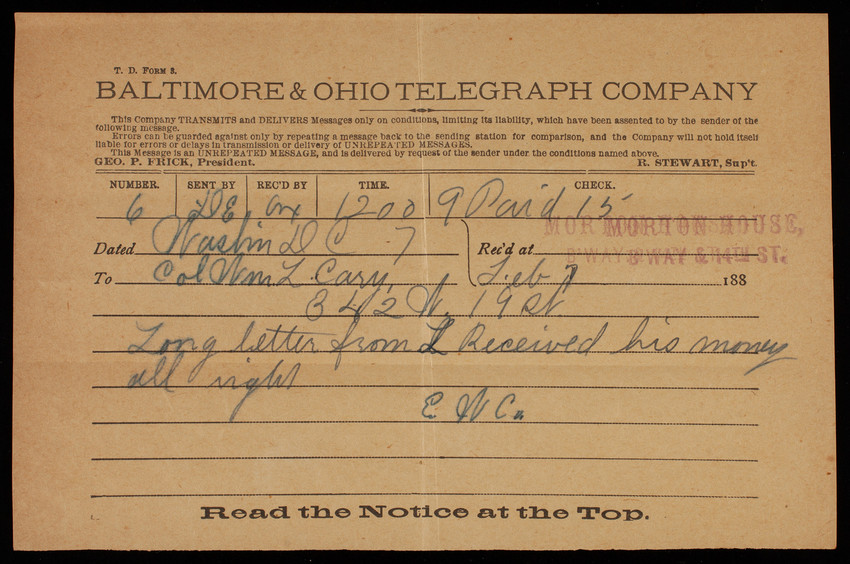 T. D. FORM 3.
BALTIMORE & OHIO TELEGRAPH COMPANY
This Company TRANSMITS and DELIVERS Messages only on conditions, limiting its liability, which have been assented to by the sender of the
following message.
Errors can be guarded against only by repeating a message back to the sending station for comparison, and the Company will not hold itself
liable for errors or delays in transmission or delivery of UNREPEATED MESSAGES.
This Message is an UNREPEATED MESSAGE, and is delivered by request of the sender under the conditions named above.
GEO. P. FRICK, President. R. STEWART, Sup't.
NUMBER. SENT BY REC'D BY TIME. CHECK.
6 DE 1200 9 Paid 15
MORTON HOUSE,
B'WAY & 14TH ST.
Dated Washin D C 7 Rec'd at
To Col Wm L Cary, Feb 7 188
342 W. 19 St
Long letter from L Received his money
all right
E W C.
Read the Notice at the Top.